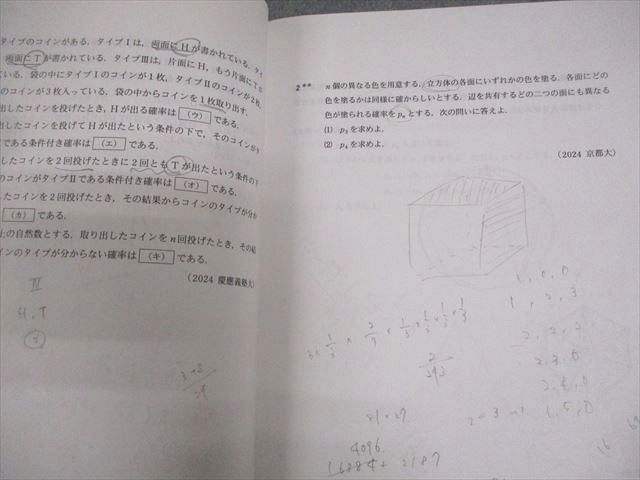 タイプのコインがある．タイプⅠは，両面にHが書かれている．タイ
両面にTが書かれている．タイプⅢは，片面にH，もう片面にTが
ている．袋の中にタイプⅠのコインが1枚，タイプⅡのコインが2枚，
のコインが3枚入っている．袋の中からコインを1枚取り出す．
出したコインを投げたとき，Hが出る確率は (ウ) である．
出したコインを投げてHが出たという条件の下で，そのコインが
である条件付き確率は (エ) である．
したコインを2回投げたときに2回ともTが出たという条件の下
のコインがタイプⅡである条件付き確率は (オ) である．
たコインを2回投げたとき，その結果からコインのタイプが分か
(カ) である．
上の自然数とする．取り出したコインをn回投げたとき，その結
インのタイプが分からない確率は (キ) である．
(2024 慶應義塾大)
Ⅲ
H，T
3
2** n個の異なる色を用意する．立方体の各面にいずれかの色を塗る．各面にどの
色を塗るかは同様に確からしいとする．辺を共有するどの二つの面にも異なる
色が塗られる確率をpₙとする．次の問いに答えよ．
(1) p₃を求めよ．
(2) p₄を求めよ．
(2024 京都大)
1，0，0
1，2，3
2，2，2
3×1/3×2/3×1/3×1/3×1/3×1/3
2/243
81×27
4096
16384+2187
1，5，0
16